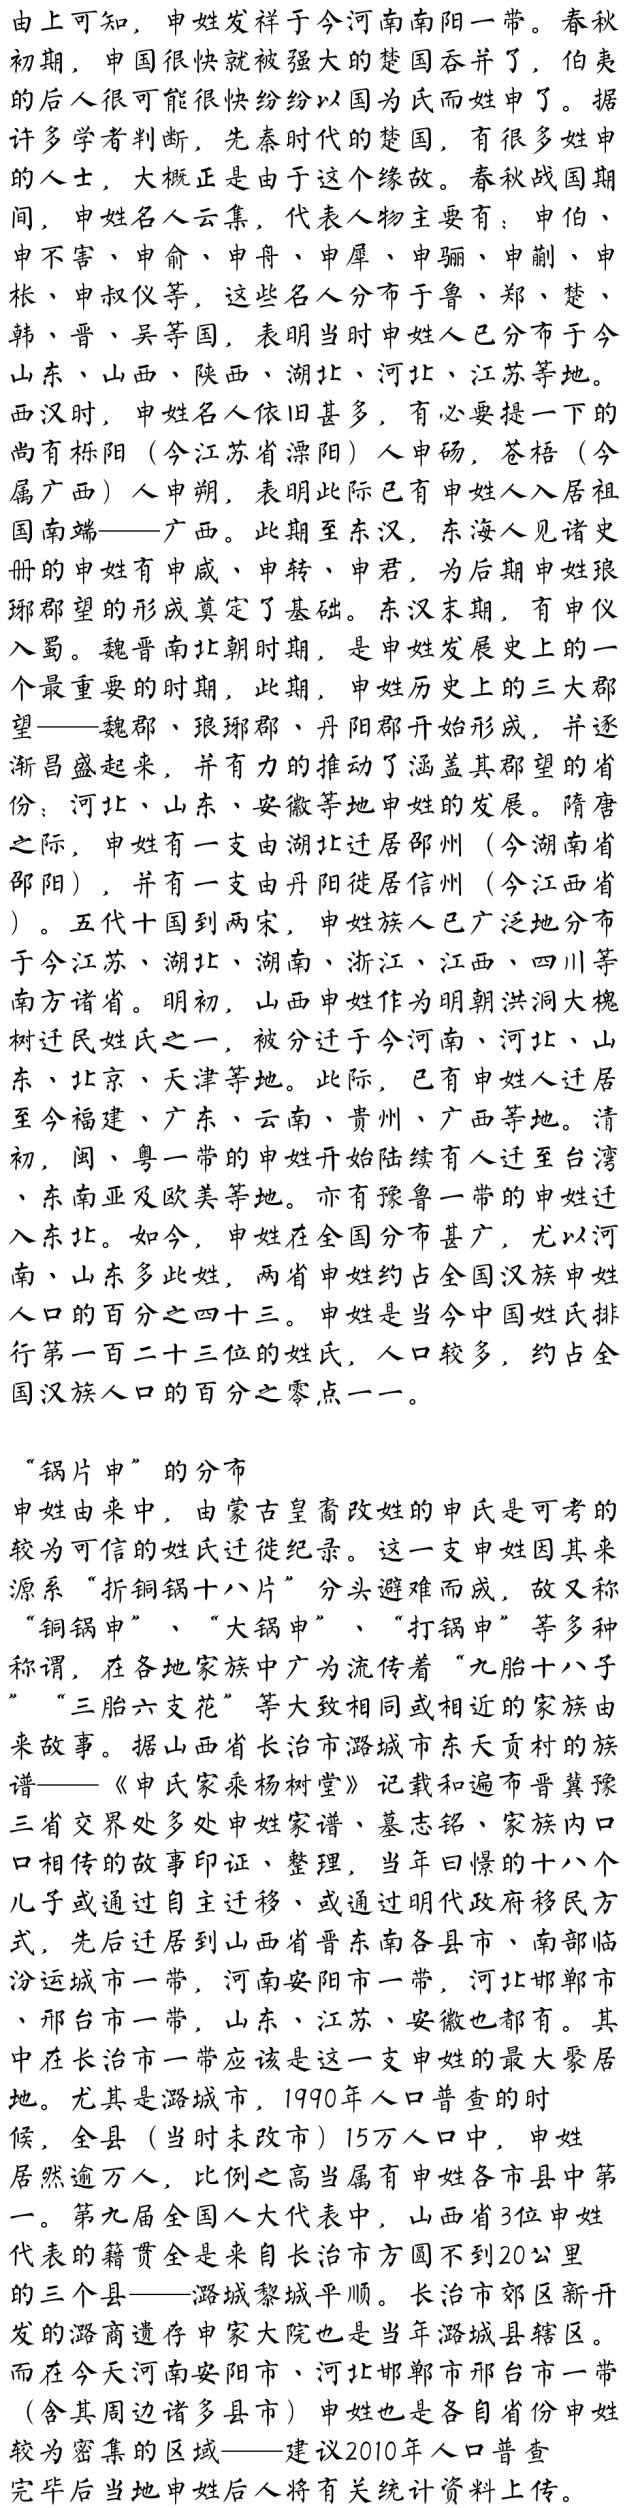 由上可知，申姓发祥于今河南南阳一带。春秋
初期，申国很快就被强大的楚国吞并了，伯夷
的后人很可能很快纷纷以国为氏而姓申了。据
许多学者判断，先秦时代的楚国，有很多姓申
的人士，大概正是由于这个缘故。春秋战国期
间，申姓名人云集，代表人物主要有：申伯、
申不害、申俞、申舟、申犀、申骊、申蒯、申
枨、申叔仪等，这些名人分布于鲁、郑、楚、
韩、晋、吴等国，表明当时申姓人已分布于今
山东、山西、陕西、湖北、河北、江苏等地。
西汉时，申姓名人依旧甚多，有必要提一下的
尚有栎阳（今江苏省溧阳）人申砀，苍梧（今
属广西）人申朔，表明此际已有申姓人入居祖
国南端——广西。此期至东汉，东海人见诸史
册的申姓有申咸、申转、申君，为后期申姓琅
琊郡望的形成奠定了基础。东汉末期，有申仪
入蜀。魏晋南北朝时期，是申姓发展史上的一
个最重要的时期，此期，申姓历史上的三大郡
望——魏郡、琅琊郡、丹阳郡开始形成，并逐
渐昌盛起来，并有力的推动了涵盖其郡望的省
份：河北、山东、安徽等地申姓的发展。隋唐
之际，申姓有一支由湖北迁居邵州（今湖南省
邵阳），并有一支由丹阳徙居信州（今江西省
）。五代十国到两宋，申姓族人已广泛地分布
于今江苏、湖北、湖南、浙江、江西、四川等
南方诸省。明初，山西申姓作为明朝洪洞大槐
树迁民姓氏之一，被分迁于今河南、河北、山
东、北京、天津等地。此际，已有申姓人迁居
至今福建、广东、云南、贵州、广西等地。清
初，闽、粤一带的申姓开始陆续有人迁至台湾
、东南亚及欧美等地。亦有豫鲁一带的申姓迁
入东北。如今，申姓在全国分布甚广，尤以河
南、山东多此姓，两省申姓约占全国汉族申姓
人口的百分之四十三。申姓是当今中国姓氏排
行第一百二十三位的姓氏，人口较多，约占全
国汉族人口的百分之零点一一。
“锅片申”的分布
申姓由来中，由蒙古皇裔改姓的申氏是可考的
较为可信的姓氏迁徙纪录。这一支申姓因其来
源系“折铜锅十八片”分头避难而成，故又称
“铜锅申”、“大锅申”、“打锅申”等多种
称谓，在各地家族中广为流传着“九胎十八子
”“三胎六支花”等大致相同或相近的家族由
来故事。据山西省长治市潞城市东天贡村的族
谱——《申氏家乘杨树堂》记载和遍布晋冀豫
三省交界处多处申姓家谱、墓志铭、家族内口
口相传的故事印证、整理，当年曰憬的十八个
儿子或通过自主迁移、或通过明代政府移民方
式，先后迁居到山西省晋东南各县市、南部临
汾运城市一带，河南安阳市一带，河北邯郸市
、邢台市一带，山东、江苏、安徽也都有。其
中在长治市一带应该是这一支申姓的最大聚居
地。尤其是潞城市，1990年人口普查的时
候，全县（当时未改市）15万人口中，申姓
居然逾万人，比例之高当属有申姓各市县中第
一。第九届全国人大代表中，山西省3位申姓
代表的籍贯全是来自长治市方圆不到20公里
的三个县——潞城黎城平顺。长治市郊区新开
发的潞商遗存申家大院也是当年潞城县辖区。
而在今天河南安阳市、河北邯郸市邢台市一带
（含其周边诸多县市）申姓也是各自省份申姓
较为密集的区域——建议2010年人口普查
完毕后当地申姓后人将有关统计资料上传。